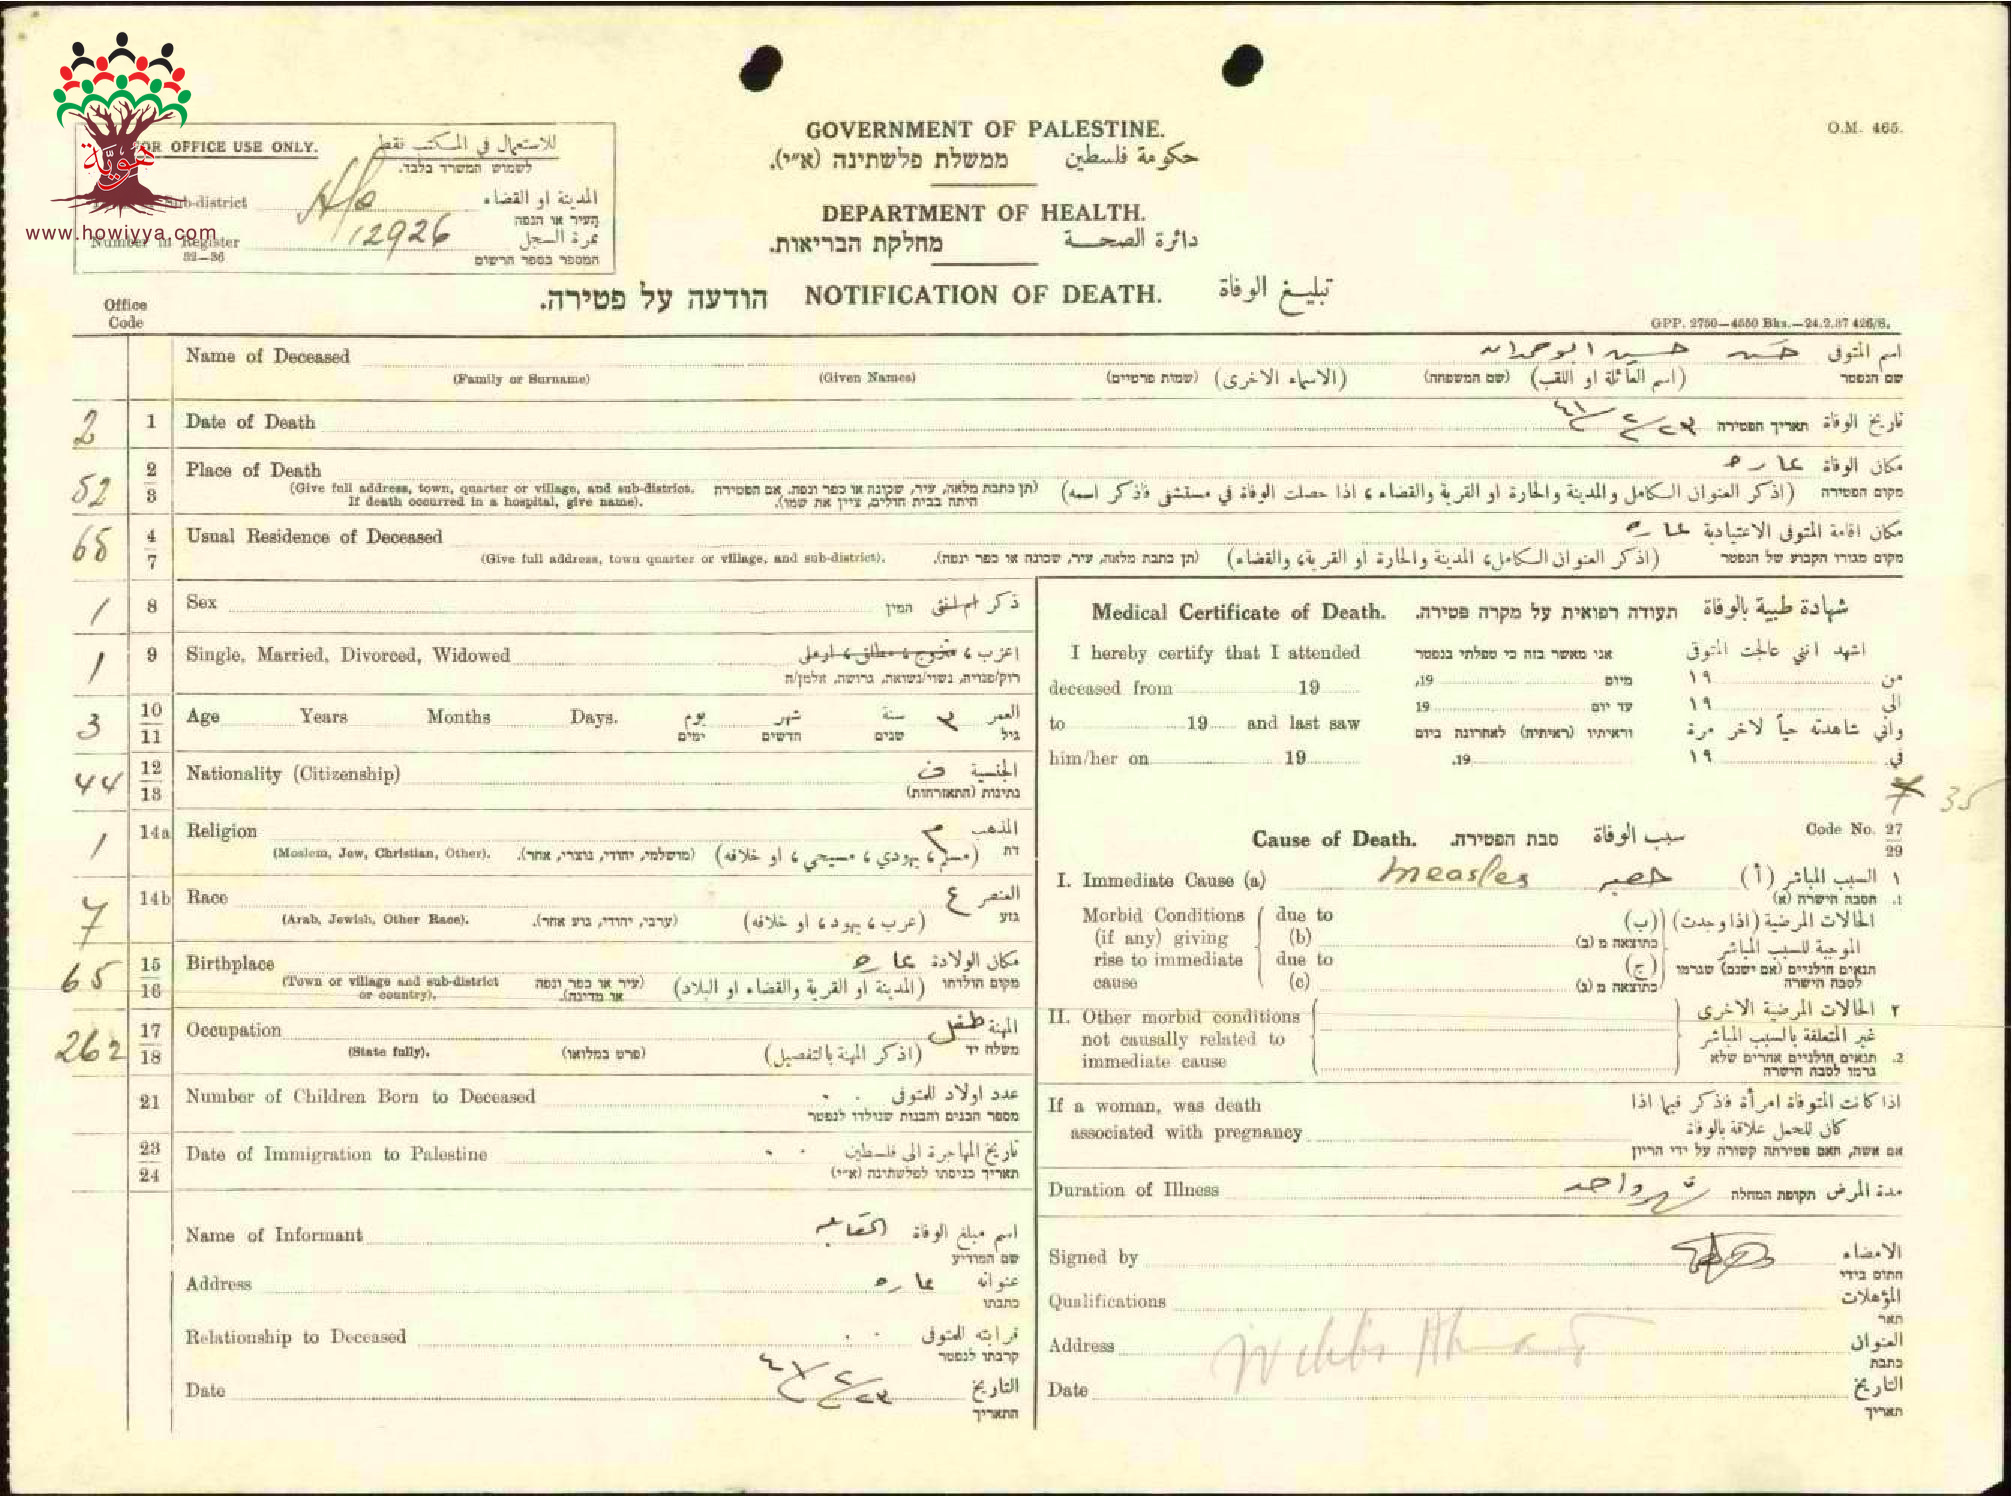 هويّة
www.howiyya.com
O.M. 465.
FOR OFFICE USE ONLY. للاستعمال في المكتب فقط
לשמוש המשרד בלבד.
Sub-district المدينة او القضاء
העיר או הנפה
Number in Register 12926 نمرة السجل
32—36 המספר בספר הרשום
GOVERNMENT OF PALESTINE.
ממשלת פלשתינה (א״י). حكومة فلسطين
DEPARTMENT OF HEALTH.
מחלקת הבריאות. دائرة الصحة
הודעה על פטירה. NOTIFICATION OF DEATH. تبليغ الوفاة
Office
Code
GPP. 2750—4550 Bks.—24.2.37 426/S.
Name of Deceased حسن حسين ابو حمدان اسم المتوفى
(Family or Surname) (Given Names) (שמות פרטיים) (الاسماء الاخرى) (שם המשפחה) (اسم العائلة او اللقب) שם הנפטר
2 1 Date of Death ٢٣/٢/٤١ תאריך הפטירה تاريخ الوفاة
52 2 3 Place of Death عاره مكان الوفاة
(Give full address, town, quarter or village, and sub-district. (תן כתבת מלאה, עיר, שכונה או כפר ונפה. אם הפטירה (اذكر العنوان الكامل والمدينة والحارة او القرية والقضاء، اذا حصلت الوفاة في مستشفى فاذكر اسمه) מקום הפטירה
If death occurred in a hospital, give name). היתה בבית חולים, ציין את שמו).
65 4 7 Usual Residence of Deceased عاره مكان اقامة المتوفى الاعتيادية
(Give full address, town quarter or village, and sub-district). (תן כתבת מלאה, עיר, שכונה או כפר ונפה). (اذكر العنوان الكامل، المدينة والحارة او القرية، والقضاء) מקום מגורו הקבוע של הנפטר
1 8 Sex המין ذكر ام انثى
1 9 Single, Married, Divorced, Widowed اعزب، متزوج، مطلق، ارمل
רוק/פנויה, נשוי/נשואה, גרושה, אלמן/ה
3 10 11 Age Years Months Days. يوم شهر سنة ٣ العمر
ימים חדשים שנים גיל
44 12 13 Nationality (Citizenship) ف الجنسية
נתינות (התאזרחות)
1 14a Religion م المذهب
(Moslem, Jew, Christian, Other). (מושלמי, יהודי, נוצרי, אחר). (مسلم، يهودي، مسيحي، او خلافه) דת
7 14b Race ع العنصر
(Arab, Jewish, Other Race). (ערבי, יהודי, גזע אחר). (عرب، يهود، او خلافه) גזע
65 15 16 Birthplace عاره مكان الولادة
(Town or village and sub-district (עיר או כפר ונפה (المدينة او القرية والقضاء او البلاد) מקום הולדתו
or country). או מדינה).
262 17 18 Occupation طفل المهنة
(State fully). (פרט במלואו) (اذكر المهنة بالتفصيل) משלח יד
21 Number of Children Born to Deceased عدد اولاد للمتوفى
מספר הבנים והבנות שנולדו לנפטר
23 24 Date of Immigration to Palestine تاريخ المهاجرة الى فلسطين
תאריך כניסתו לפלשתינה (א״י)
Name of Informant اسم مبلغ الوفاة
שם המודיע
Address عاره عنوانه
כתבתו
Relationship to Deceased قرابته للمتوفى
קרבתו לנפטר
Date ٢٣/٢/٤١ التاريخ
התאריך
Medical Certificate of Death. תעודה רפואית על מקרה פטירה. شهادة طبية بالوفاة
I hereby certify that I attended אני מאשר בזה כי טפלתי בנפטר اشهد انني عالجت المتوفى
deceased from 19 19, מיום ١٩ من
to 19 and last saw 19 עד יום ١٩ الى
וראיתיו (ראיתיה) לאחרונה ביום واني شاهدته حياً لاخر مرة
him/her on 19 19. ١٩ في
35
Cause of Death. סבת הפטירה. سبب الوفاة Code No. 27 29
I. Immediate Cause (a) measles حصبه السبب المباشر (أ) ١
הסבה הישרה (א) 1.
Morbid Conditions due to الحالات المرضية (اذا وجدت) (ب)
(if any) giving (b) כתוצאה מ (ב) الموجبة للسبب المباشر
rise to immediate due to (ج) תנאים חולניים (אם ישנם) שגרמו
cause (c) כתוצאה מ (ג) לסבה הישרה
II. Other morbid conditions ٢ الحالات المرضية الاخرى
not causally related to غير المتعلقة بالسبب المباشر
immediate cause 2. תנאים חולניים אחרים שלא
גרמו לסבה הישרה
If a woman, was death اذا كانت المتوفاة امرأة فاذكر فيما اذا
associated with pregnancy كان للحمل علاقة بالوفاة
אם אשה, האם פטירתה קשורה על ידי הריון
Duration of Illness شهر واحد תקופת המחלה مدة المرض
Signed by الامضاء
חתום בידי
Qualifications المؤهلات
תאר
Address العنوان
כתבת
Date التاريخ
תאריך